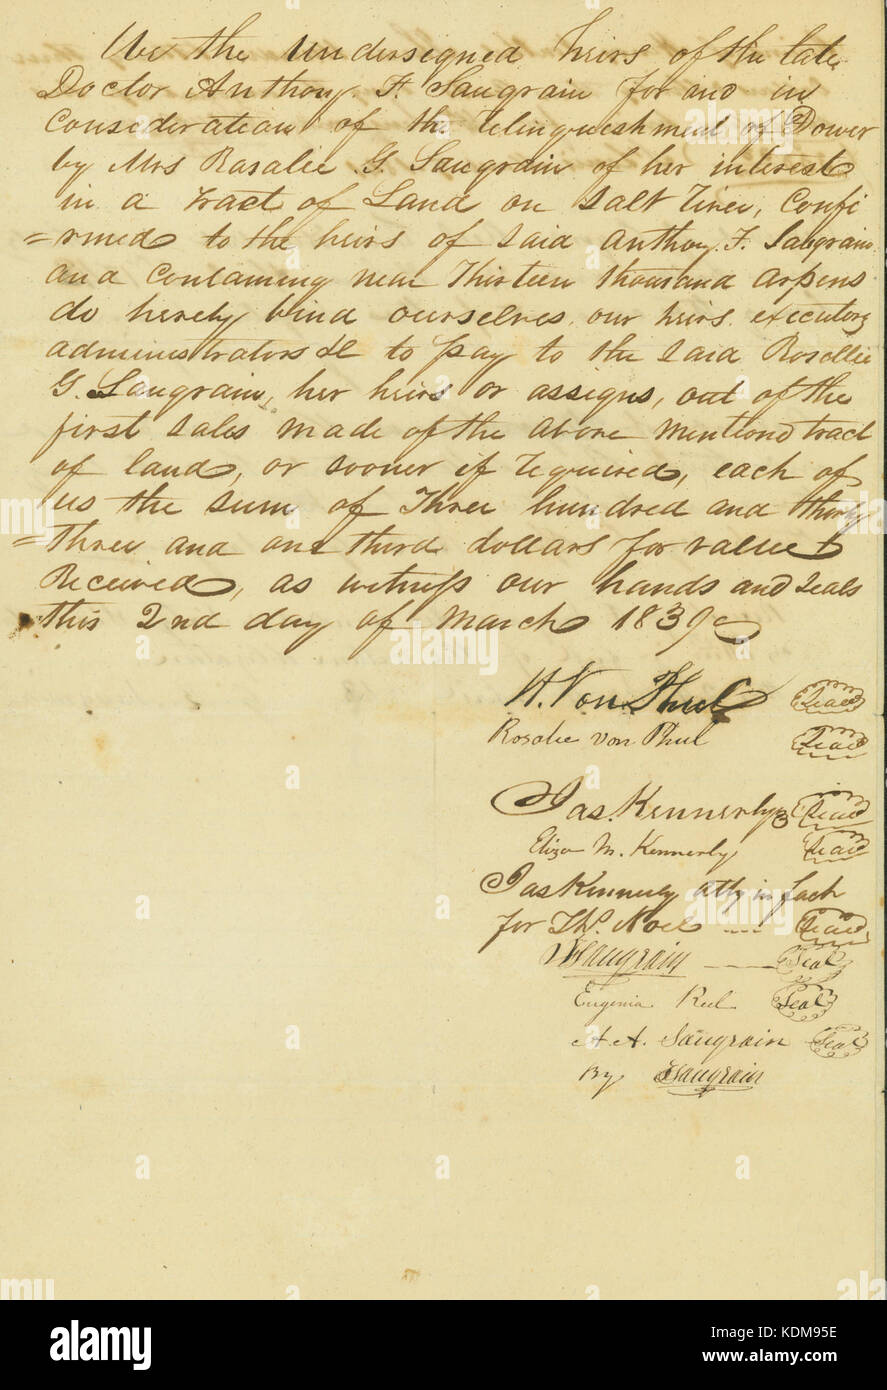 We the Undersegned heirs of the late
Doctor Anthony. F. Saugrain for and in
Consederation of the relinqueshment of Dower
by Mrs Rasalie G. Saugrain of her interest
in a tract of Land on Salt River, Confi
=rmed to the heirs of said Anthony. F. Saugrain
and Containing near Thirteen thousand arpens
do hereby bind ourselves, our heirs, executors
administrators &c to pay to the said Rosellie
G. Saugrain, her heirs or assigns, out of the
first sales made of the above mentiond tract
of land, or sooner if required, each of
us the sum of Three hundred and thirty
=three and one third dollars for value
Received, as witness our hands and seals
this 2nd day of March 1839
H. Von Phul Seal
Rosalie von Phul Seal
Jas Kennerly Seal
Eliza M. Kennerly Seal
Jas Kennerly atty in fact
for Thos. Noel --- Seal
Saugrain Seal
Eugenia Reel Seal
A. A. Saugrain Seal
By Saugrain
alamy
a
alamy stock photo
KDM95E
www.alamy.com